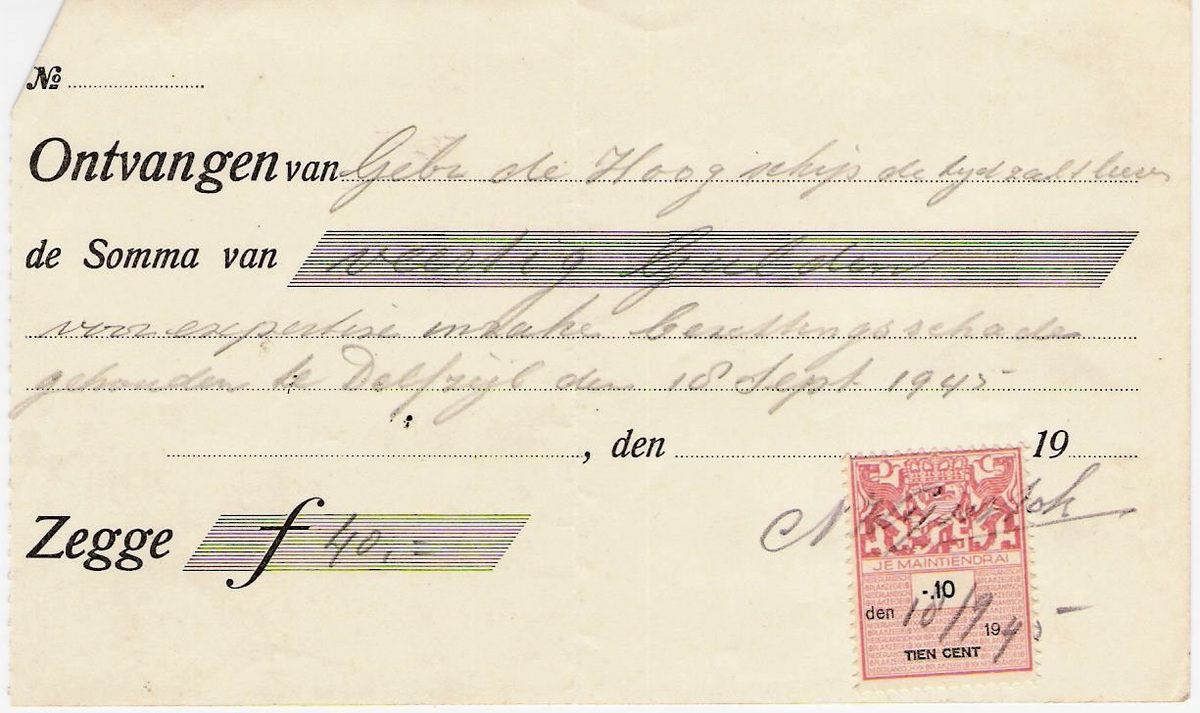 №
Ontvangen van Gebr de Hoog schip de tijd zal t leeren
de Somma van veertig Gulden
voor expertise inzake bezettingsschade
gehouden te Delfzijl den 18 Sept. 1945
, den 19
Zegge f 40,=
JE MAINTIENDRAI
-.10
den 18/9 1945
TIEN CENT